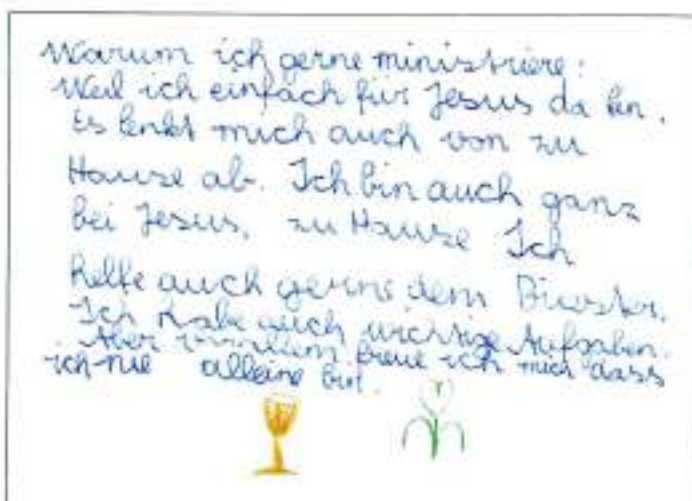 Warum ich gerne ministriere:
Weil ich einfach für Jesus da bin.
Es lenkt mich auch von zu
Hause ab. Ich bin auch ganz
bei Jesus, zu Hause Ich
helfe auch gerne dem Priester.
Ich habe auch wichtige Aufgaben.
Aber freue ich mich dass
ich nie alleine bin.